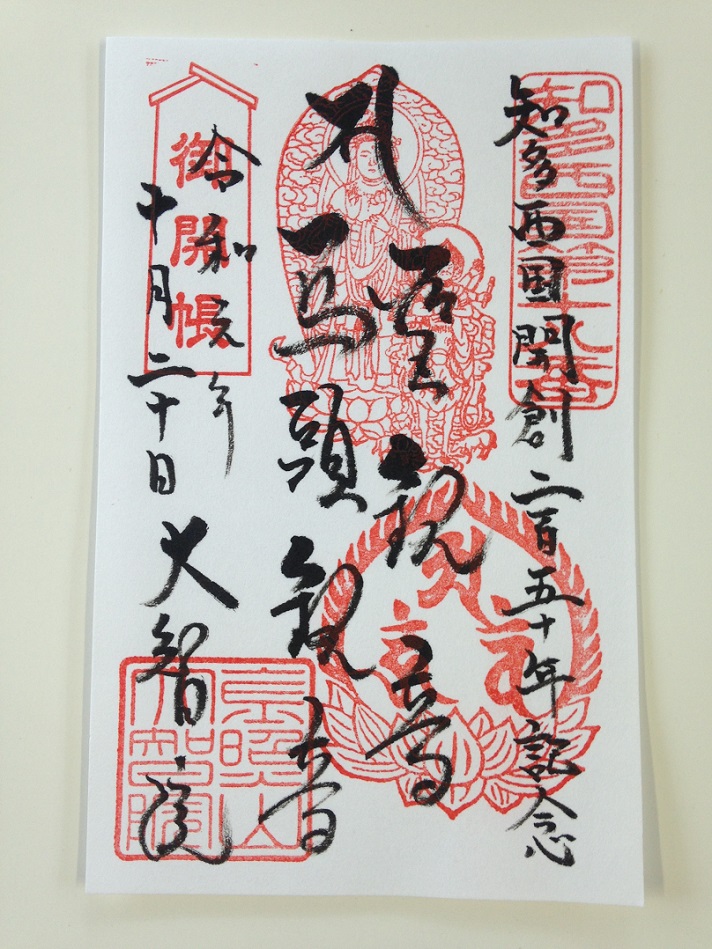 知多西国開創二百五十年記念
聖観音
馬頭観音
御開帳
令和元年
十月二十日
大智院
大智院